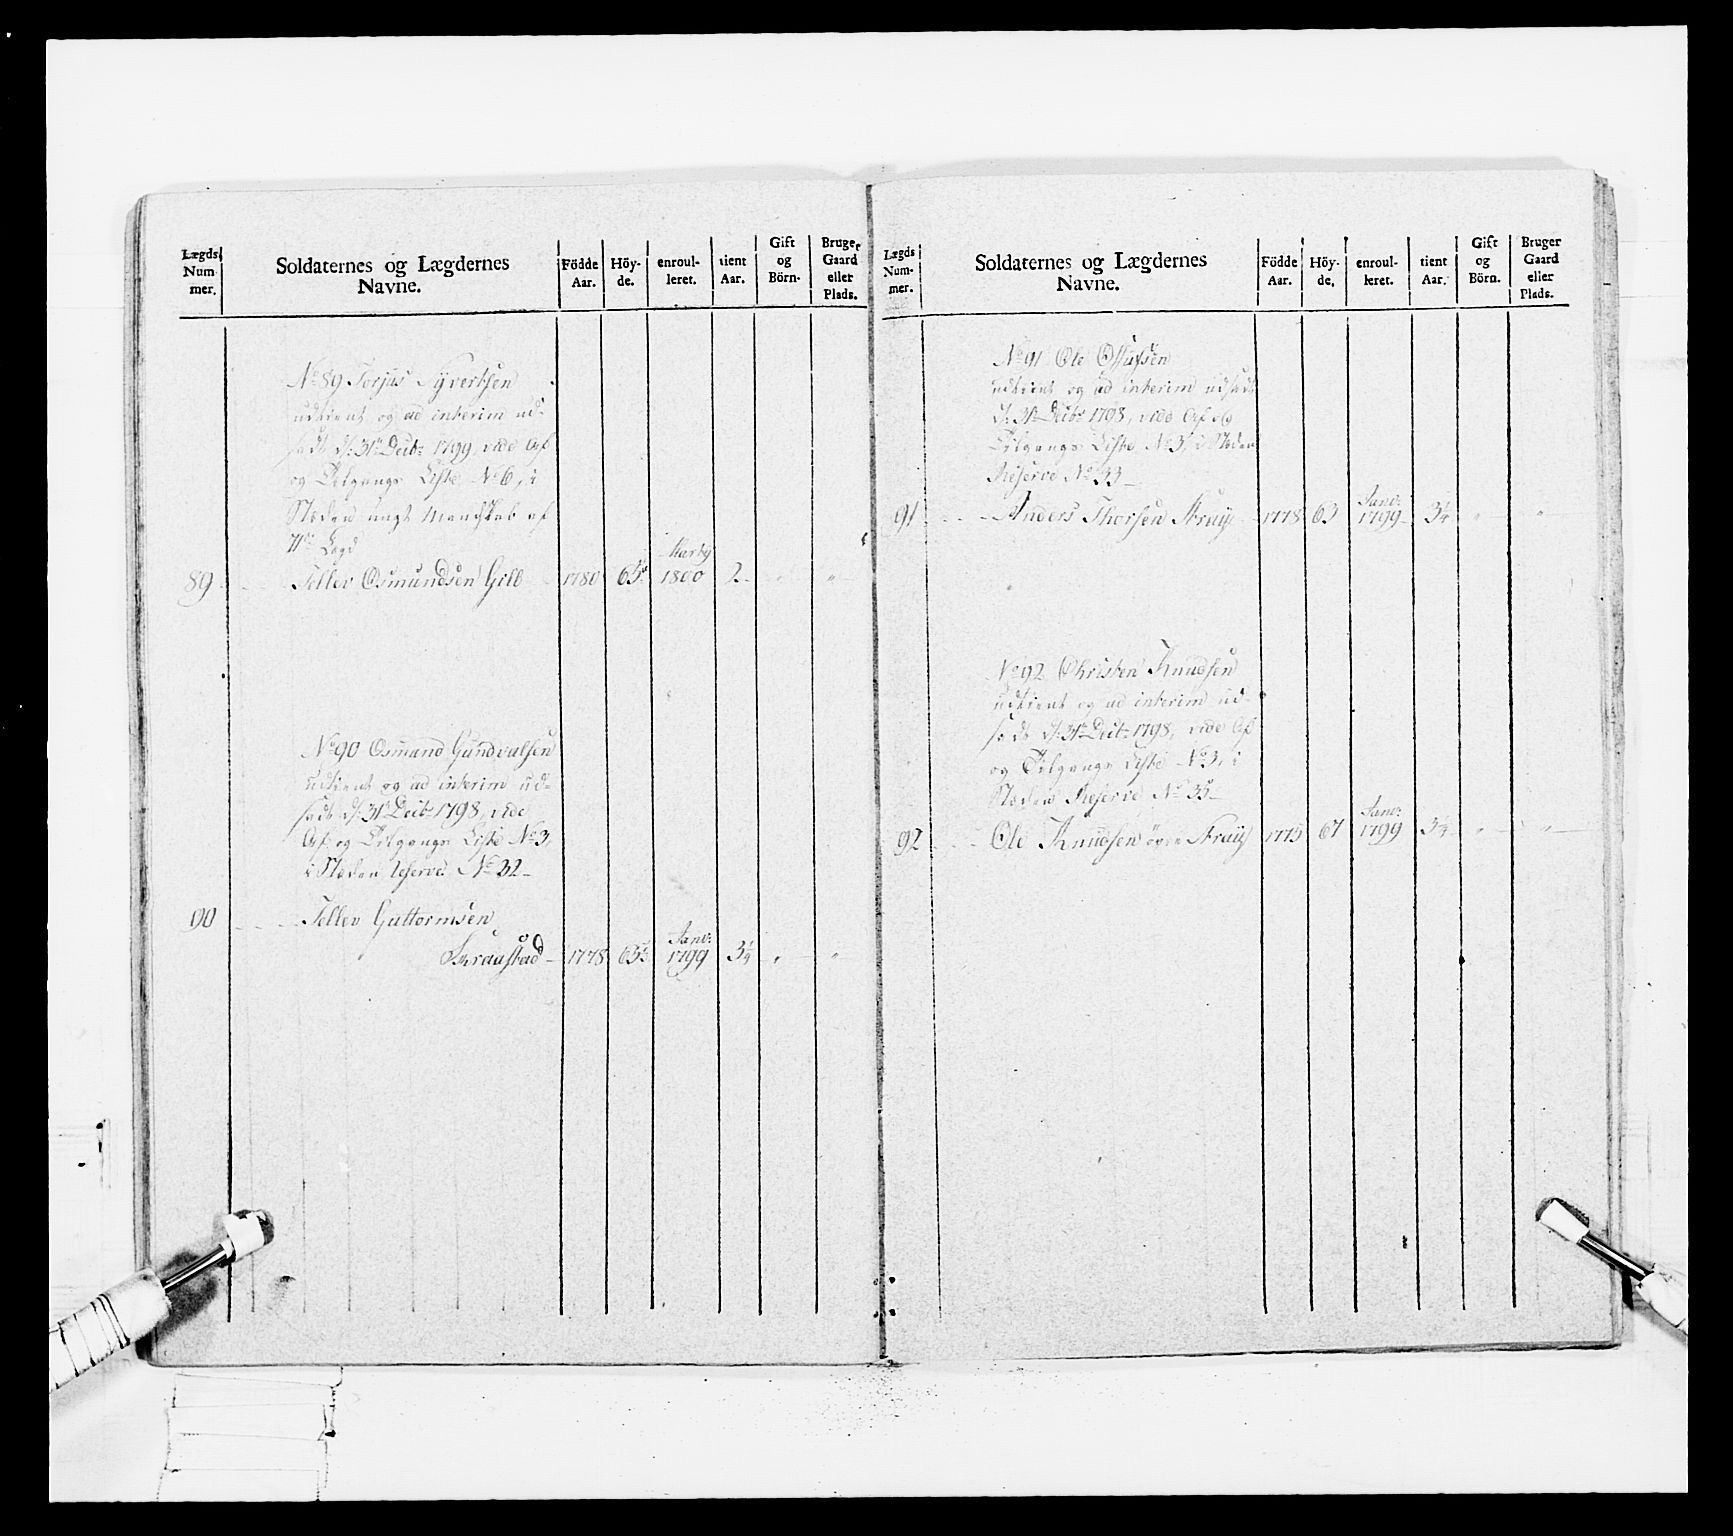 Lægds Num mer.
Soldaternes og Lægdernes Navne.
Födde Aar.
Höy- de.
enroul- leret.
tient Aar.
Gift og Börn.
Bruger Gaard eller Plads.
No 89 Torjus Syvertsen
udtient og ad interim ud-
sadt d: 31te Decbr 1799, vide Af
og Tilgangs Liste No 6, i
Steden ungt Mandskab af
71de Lægd
89 Tellev Osmundsen 1780 1800 2
No 90 Osmund Gundvalsen
udtient og ad interim ud-
sadt d: 31te Decbr 1798, vide
Af og Tilgangs Liste No 3,
i Steden Reserve No 32
90 Tellev Guttormsen
1778 Janv: 1799 3 1/4
Lægds Num- mer.
Soldaternes og Lægdernes Navne.
Födde Aar.
Höy- de.
enroul- leret.
tient Aar.
Gift og Börn.
Bruger Gaard eller Plads.
No 91 Ole
udtient og ad interim udsadt
d: 31te Decbr 1798, vide Af og
Tilgangs Liste No 3, i Steden
Reserve No 33
91 Anders Thorsen 1778 63 Janv: 1799 3 1/4
No 92 Christen Knudsen
udtient og ad interim ud-
sadt d: 31te Decbr 1798, vide Af
og Tilgangs Liste No 3, i
Steden Reserve No 35
92 Ole Knudsen 1775 67 Janv: 1799 3 1/4